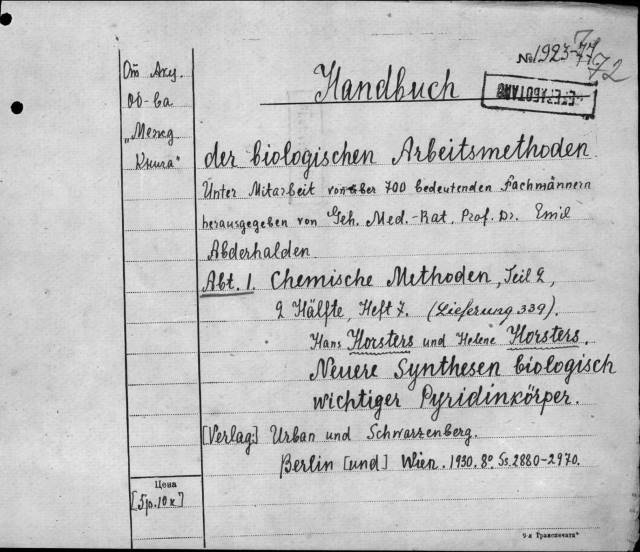 № 1923-77
772
Handbuch
От Акц.
Об-ва
„Межд
Книга"
der biologischen Arbeitsmethoden
Unter Mitarbeit von über 700 bedeutenden Fachmännern
herausgegeben von Geh. Med.-Rat. Prof. Dr. Emil
Abderhalden
Abt. I. Chemische Methoden, Teil 2,
2 Hälfte, Heft 7. (Lieferung 339).
Hans Horsters und Helene Horsters.
Neuere Synthesen biologisch
wichtiger Pyridinkörper.
[Verlag:] Urban und Schwarzenberg.
Berlin [und] Wien. 1930. 8º. Ss. 2880-2970.
Цена
[5р.10к]
9-я Транспечати"